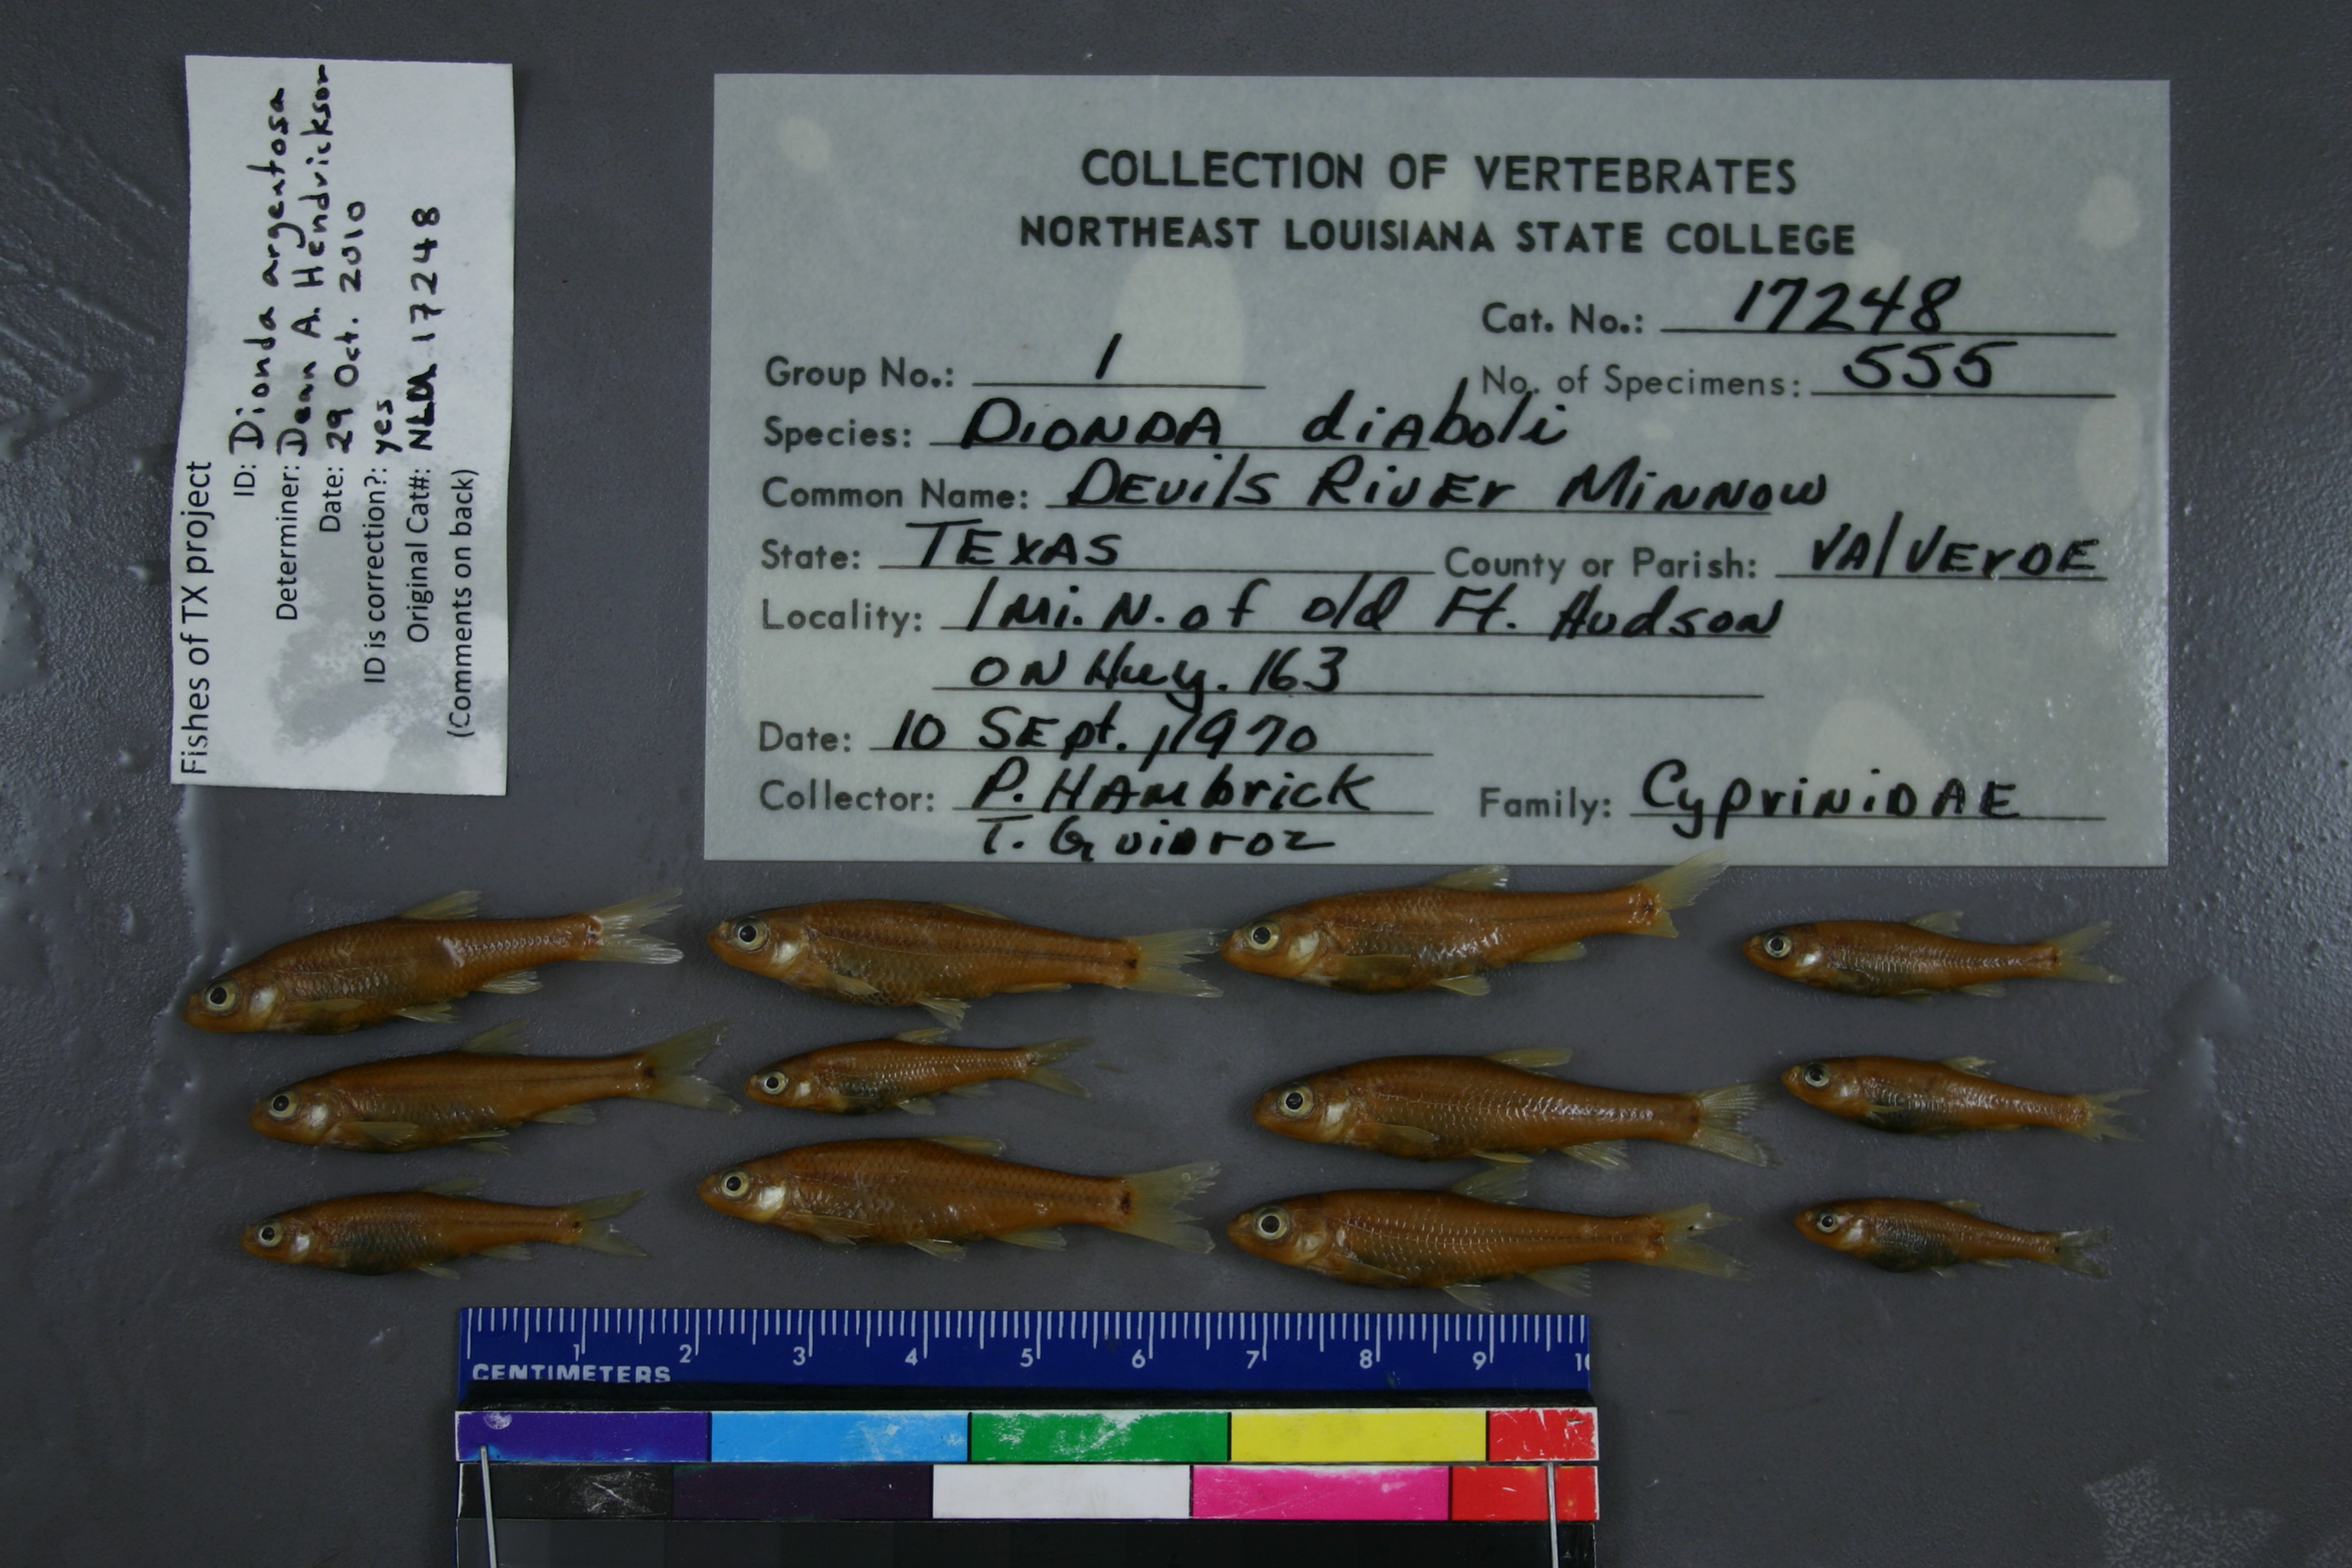 Fishes of TX project
ID: Dionda argentosa
Determiner: Dean A. Hendrickson
Date: 29 Oct. 2010
ID is correction?: yes
Original Cat#: NLU 17248
(Comments on back)
COLLECTION OF VERTEBRATES
NORTHEAST LOUISIANA STATE COLLEGE
Cat. No.: 17248
Group No.: 1 No. of Specimens: 555
Species: DIONDA diAboli
Common Name: DEvilS RivEr MiNNOW
State: TEXAS County or Parish: VAlVErDE
Locality: 1 Mi. N. of old Ft. Hudson
ON Hwy. 163
Date: 10 SEpt., 1970
Collector: P. HAMbrick Family: CypriNiDAE
T. Guidroz
1 2 3 4 5 6 7 8 9 10
CENTIMETERS